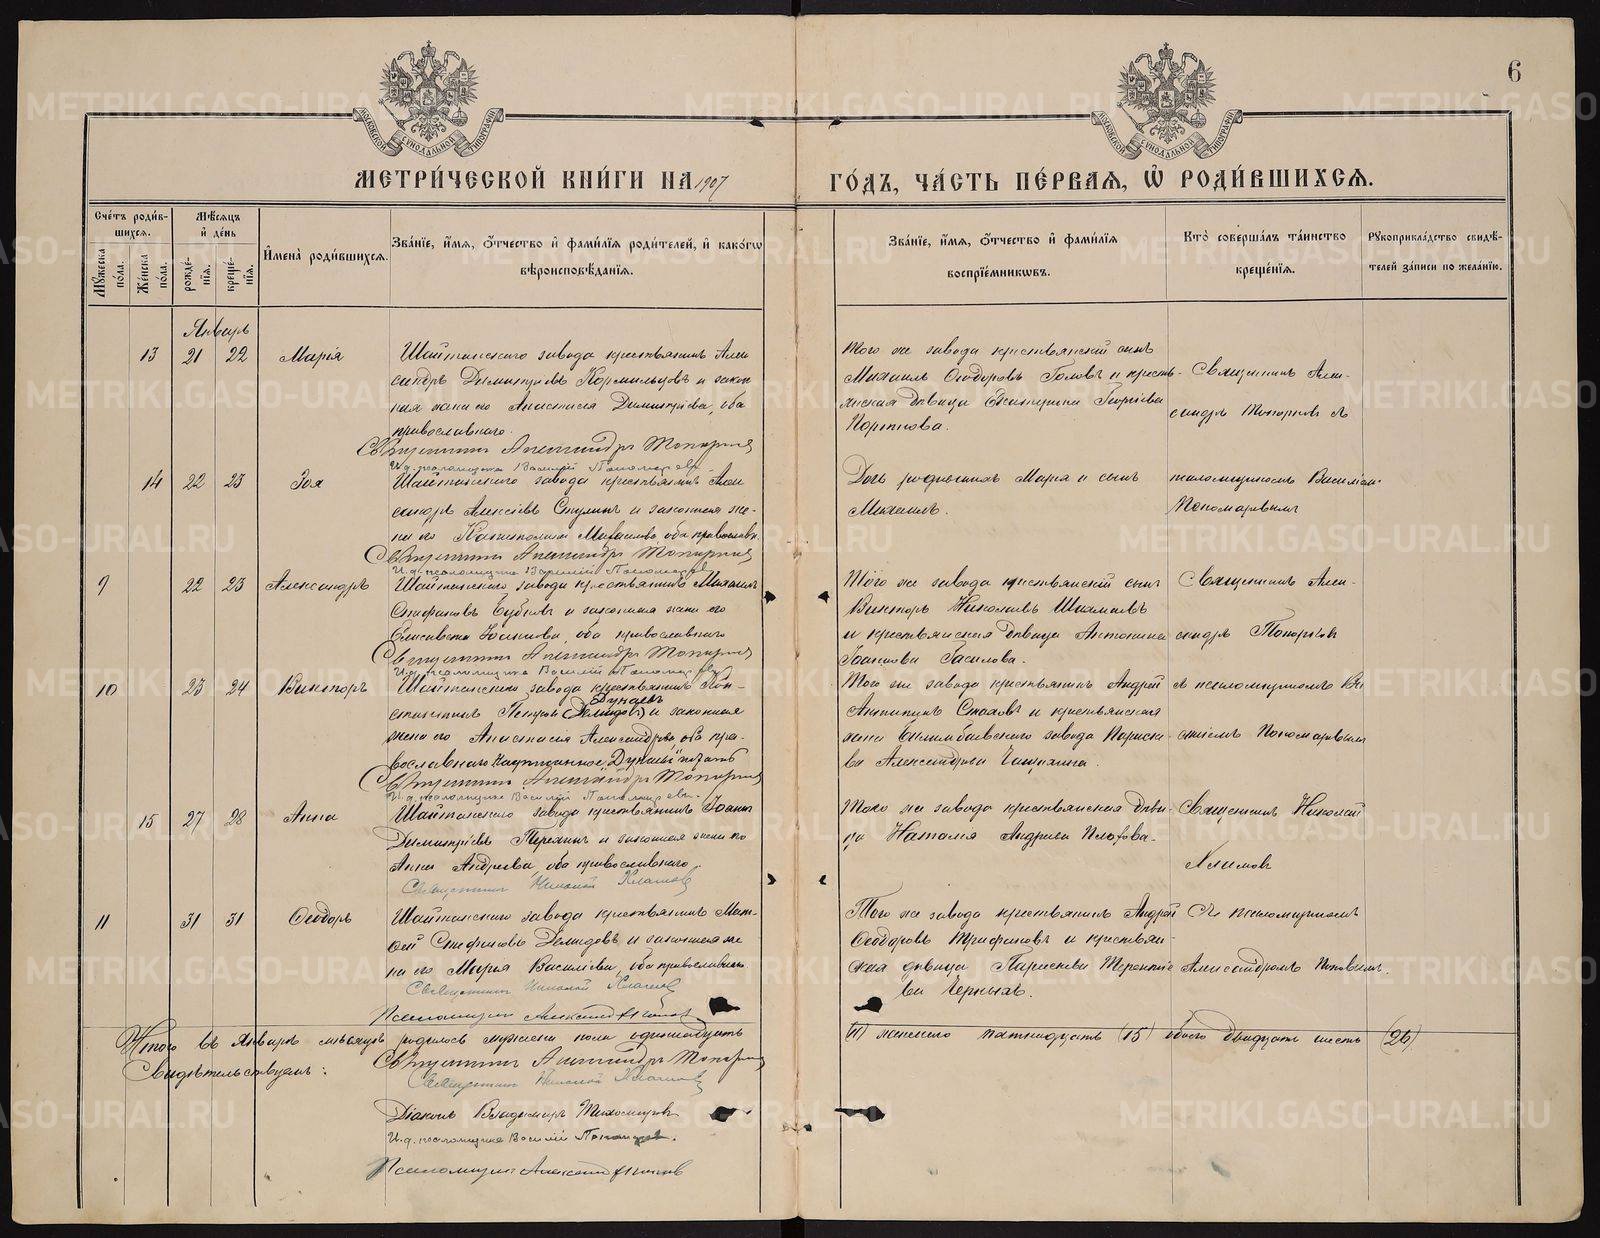 6
МЕТРИ́ЧЕСКОЙ КНИ́ГИ НА 1907 ГО́ДЪ, ЧА́СТЬ ПЕ́РВАЯ, Ѡ РОДИ́ВШИХСЯ.
Сче́тъ роди́вшихся.
Мꙋ́жеска по́ла.
Же́нска по́ла.
Мѣ́сяцъ и де́нь
рожде́нїя.
креще́нїя.
Имена̀ роди́вшихся.
Зва́нїе, и́мя, ѻ́тчество и фами́лїя роди́телей, и како́гѡ
вѣроисповѣ́данїя.
Зва́нїе, и́мя, ѻ́тчество и фами́лїя
воспрїе́мникѡвъ.
Кто̀ соверша́лъ та́инство
креще́нїя.
Рꙋкоприкла́дство свидѣ́-
телей за́писи по жела́нїю.
Январь
13 21 22 Марія
Шайтанскаго завода крестьянинъ Алек
сандръ Димитріевъ Кормильцовъ и закон
ная жена его Анастасія Димитріева, оба
православнаго.
Священникъ Александръ Топорковъ
И.д. псаломщика Василій Пономаревъ
Того же завода крестьянскій сынъ
Михаилъ Ѳеодоровъ Головъ и кресть-
янская дѣвица Екатерина Георгіева
Священникъ Алек-
сандръ Топорковъ съ
14 22 23 Зоя
Шайтанскаго завода крестьянинъ Алек
сандръ Алексѣевъ Стулинъ и законная же-
на его Капитолина Михаилова, оба православн.
Священникъ Александръ Топорковъ
И.д. псаломщика Василій Пономаревъ
Дочь родителей Марія и сынъ
Михаилъ.
псаломщикомъ Василіем
Пономаревымъ
9 22 23 Александръ
Шайтанскаго завода крестьянинъ Михаилъ
Елисавета Іоаннова, оба православнаго
Священникъ Александръ Топорковъ
И.д. псаломщика Василій Пономаревъ
Того же завода крестьянскій сынъ
Викторъ Николаевъ Шахмаевъ
и крестьянская дѣвица Антонина
Іоаннова Гасилова.
Священникъ Алек-
сандръ Топорков
10 23 24 Викторъ
Шайтанскаго завода крестьянинъ Кон-
Дунаевъ
стантинъ Петровъ (Демидовъ) и законная
жена его Анастасія Александрова, оба пра-
вославнаго. Надписанное „Дунаевъ" читать
Священникъ Александръ Топорковъ
И.д. псаломщика Василій Пономаревъ.
Того же завода крестьянинъ Андрей
и крестьянская
жена Билимбаевскаго завода Параске
ва Александрова
съ псаломщикомъ Ва
силіемъ Пономаревымъ
15 27 28 Анна
Шайтанскаго завода крестьянинъ Іоаннъ
Димитріевъ Терехинъ и законная жена его
Анна Андреева, оба православнаго.
Священникъ Николай
Того же завода крестьянская дѣви-
ца Наталія Андреева
Священникъ Николай
11 31 31 Ѳеодоръ
Шайтанскаго завода крестьянинъ Мат-
ѳей Стефановъ Демидовъ и законная же
на его Марья Василіева, оба православн.
Священникъ Николай
Псаломщикъ Александръ Поповъ
Того же завода крестьянинъ Андрей
Ѳеодоровъ Трифановъ и крестьян-
ская дѣвица Параскева Терентіе
ва Черныхъ.
Съ псаломщикомъ
Александромъ Поповымъ.
Итого въ Январѣ мѣсяцѣ родилось мужеска пола одиннадцать (11) женскаго пятнадцать (15) обоего двадцать шесть (26)
Свидѣтельствуемъ:
Священникъ Александръ Топорковъ
Священникъ Николай
Діаконъ Владимиръ Тихомировъ
И.д. псаломщика Василій Пономаревъ.
Псаломщикъ Александръ Поповъ
METRIKI.GASO-URAL.RU